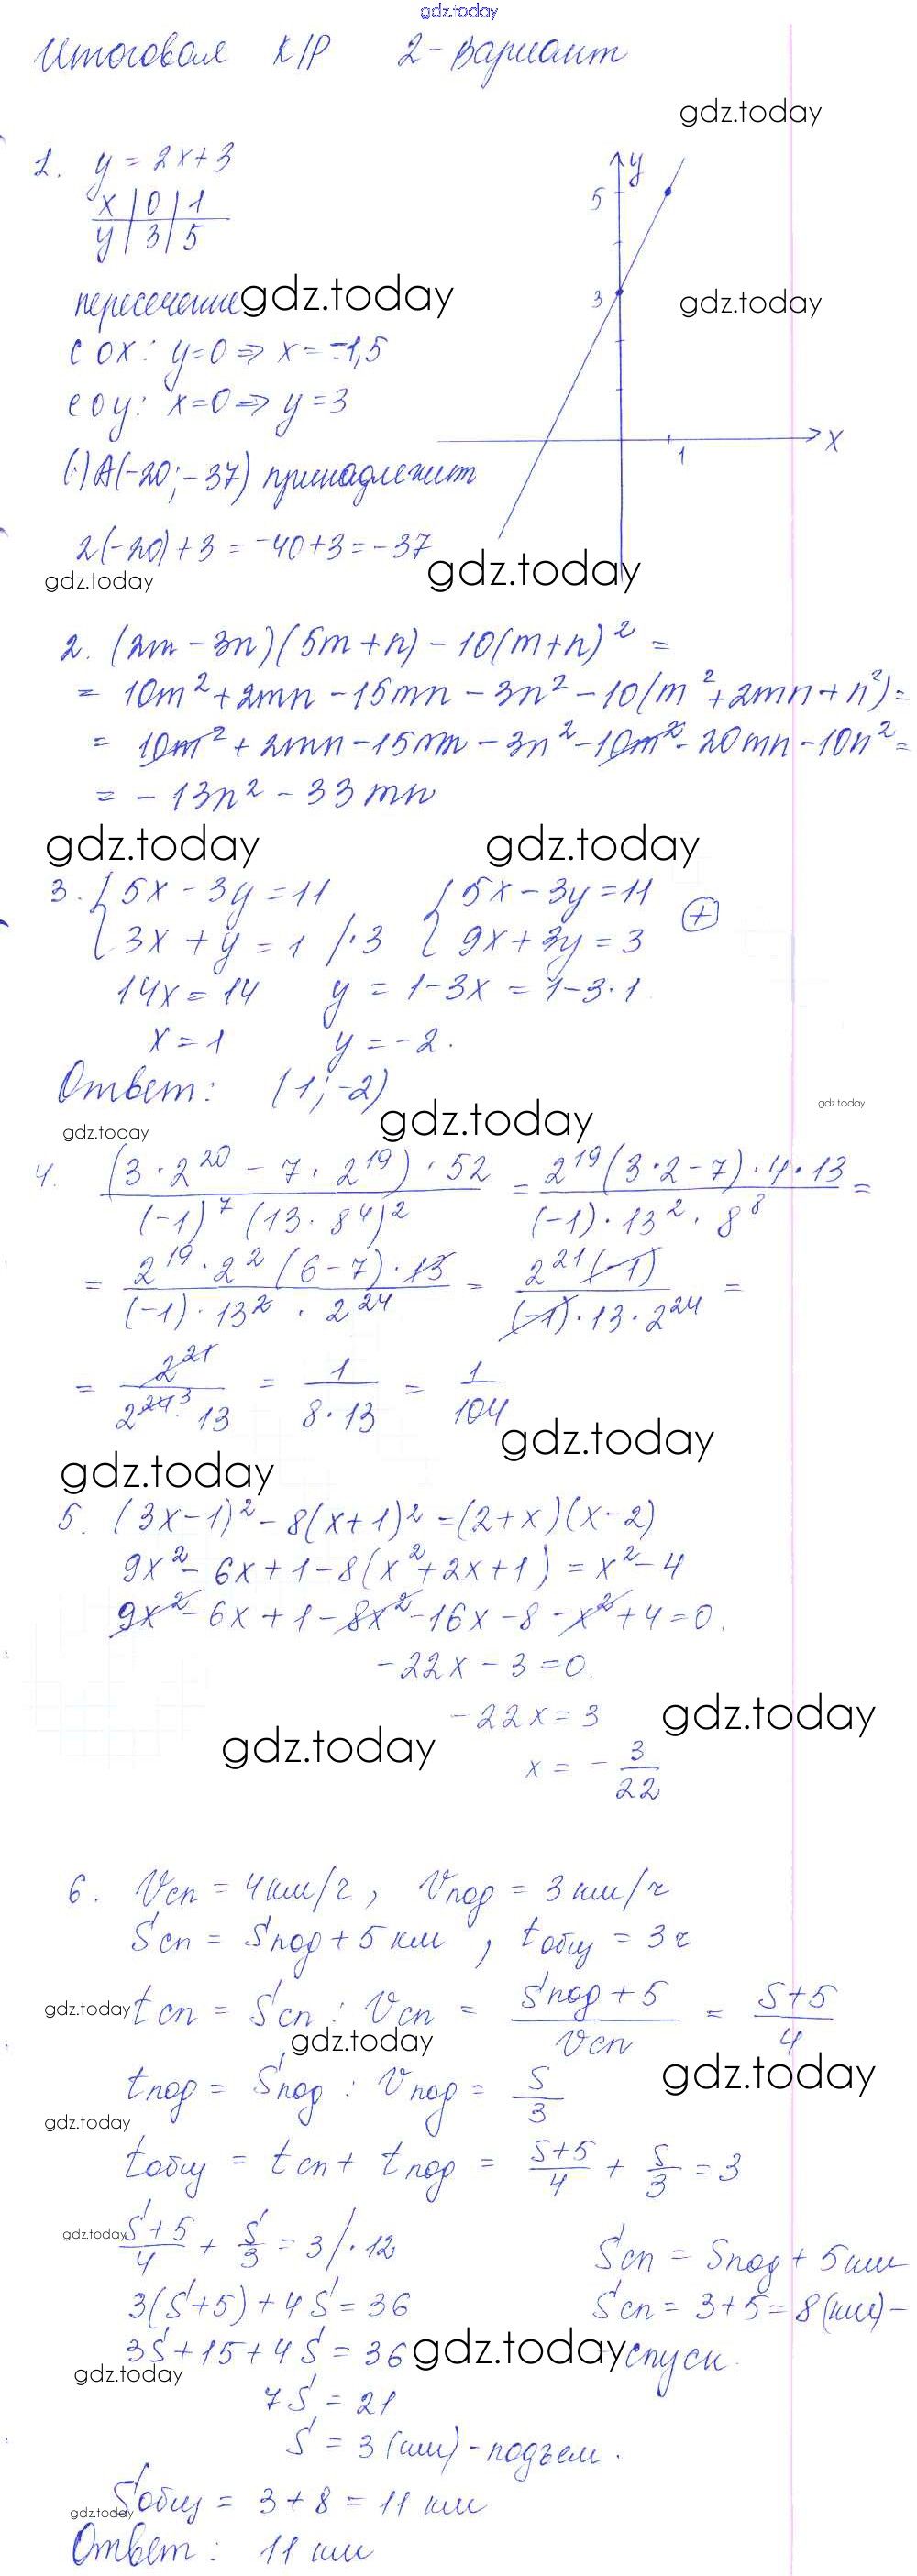 gdz.today
Итоговая К/Р 2-вариант
gdz.today
1. y = 2x+3
x | 0 | 1
y | 3 | 5
y
5
3
x
1
пересечение gdz.today
gdz.today
с OX: y=0 ⇒ x = -1,5
с OY: x=0 ⇒ y=3
(·) A(-20; -37) принадлежит
2(-20)+3 = -40+3 = -37
gdz.today
gdz.today
2. (2m - 3n)(5m+n) - 10(m+n)² =
= 10m² + 2mn - 15mn - 3n² - 10(m² + 2mn + n²) =
= 10m² + 2mn - 15mn - 3n² - 10m² - 20mn - 10n² =
= - 13n² - 33mn
gdz.today gdz.today
3. { 5x - 3y = 11 { 5x - 3y = 11
{ 3x + y = 1 /·3 { 9x + 3y = 3 (+)
14x = 14 y = 1-3x = 1-3·1
x = 1 y = -2.
Ответ: (1; -2)
gdz.today
gdz.today
gdz.today
4. (3·2²⁰ - 7·2¹⁹)·52 / (-1)⁷(13·8⁴)² = 2¹⁹(3·2-7)·4·13 / (-1)·13²·8⁸ =
= 2¹⁹·2²(6-7)·13 / (-1)·13²·2²⁴ = 2²¹(-1) / (-1)·13·2²⁴ =
= 2²¹ / 2²⁴ ³·13 = 1 / 8·13 = 1 / 104
gdz.today
gdz.today
5. (3x-1)² - 8(x+1)² = (2+x)(x-2)
9x² - 6x + 1 - 8(x² + 2x + 1) = x² - 4
9x² - 6x + 1 - 8x² - 16x - 8 - x² + 4 = 0.
-22x - 3 = 0.
-22x = 3
gdz.today
gdz.today
x = - 3/22
6. Vсп = 4км/ч, Vпод = 3км/ч
Sсп = Sпод + 5 км, tобщ = 3ч
gdz.today tсп = Sсп : Vсп = Sпод + 5 / Vсп = S+5 / 4
gdz.today
tпод = Sпод : Vпод = S/3
gdz.today
gdz.today
tобщ = tсп + tпод = S+5 / 4 + S/3 = 3
gdz.today S+5 / 4 + S/3 = 3 /·12
Sсп = Sпод + 5км
3(S+5) + 4S = 36 Sсп = 3+5 = 8(км) -
3S + 15 + 4S = 36 gdz.today спуск.
gdz.today
7S = 21
S = 3(км) - подъем.
Sобщ = 3 + 8 = 11 км
gdz.today
Ответ: 11 км